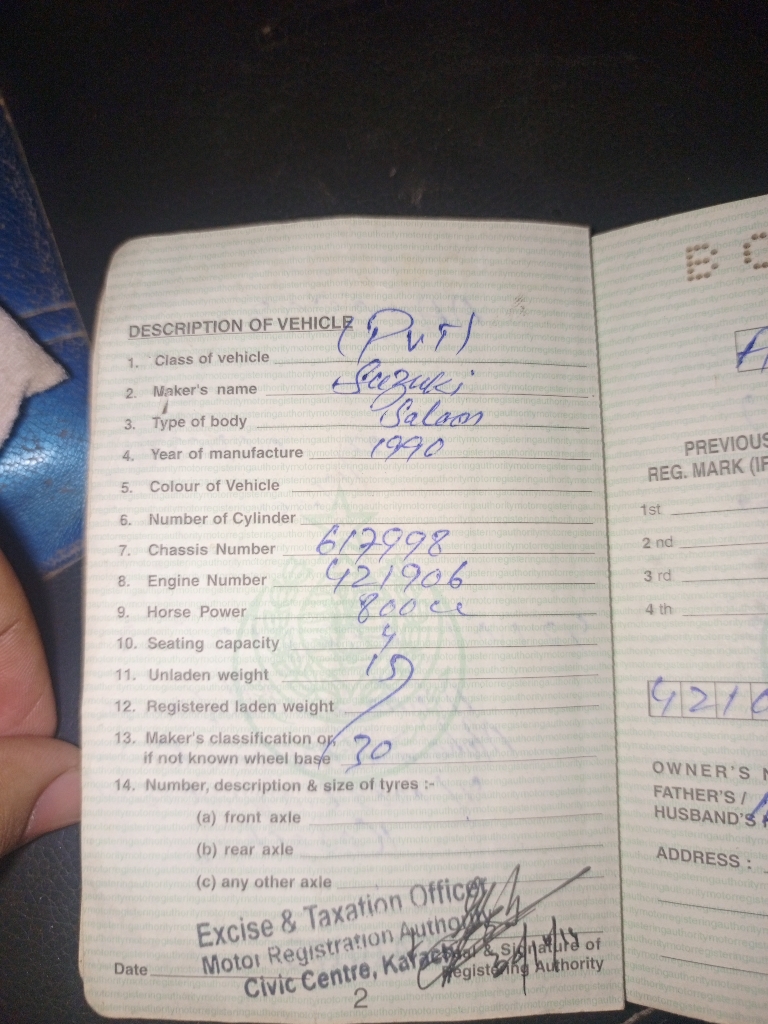 DESCRIPTION OF VEHICLE
1. Class of vehicle (PVT)
2. Maker's name Suzuki
3. Type of body Saloon
4. Year of manufacture 1990
5. Colour of Vehicle
6. Number of Cylinder
7. Chassis Number 617998
8. Engine Number 421906
9. Horse Power 800cc
10. Seating capacity 4
11. Unladen weight 15
12. Registered laden weight
13. Maker's classification or
if not known wheel base 30
14. Number, description & size of tyres :-
(a) front axle
(b) rear axle
(c) any other axle
Excise & Taxation Officer
Motor Registration Authority
Civic Centre, Karachi
& Signature of
Registering Authority
Date
2
B
PREVIOUS
REG. MARK (IF
1st
2 nd
3 rd
4 th
4210
OWNER'S
FATHER'S /
HUSBAND'S
ADDRESS :